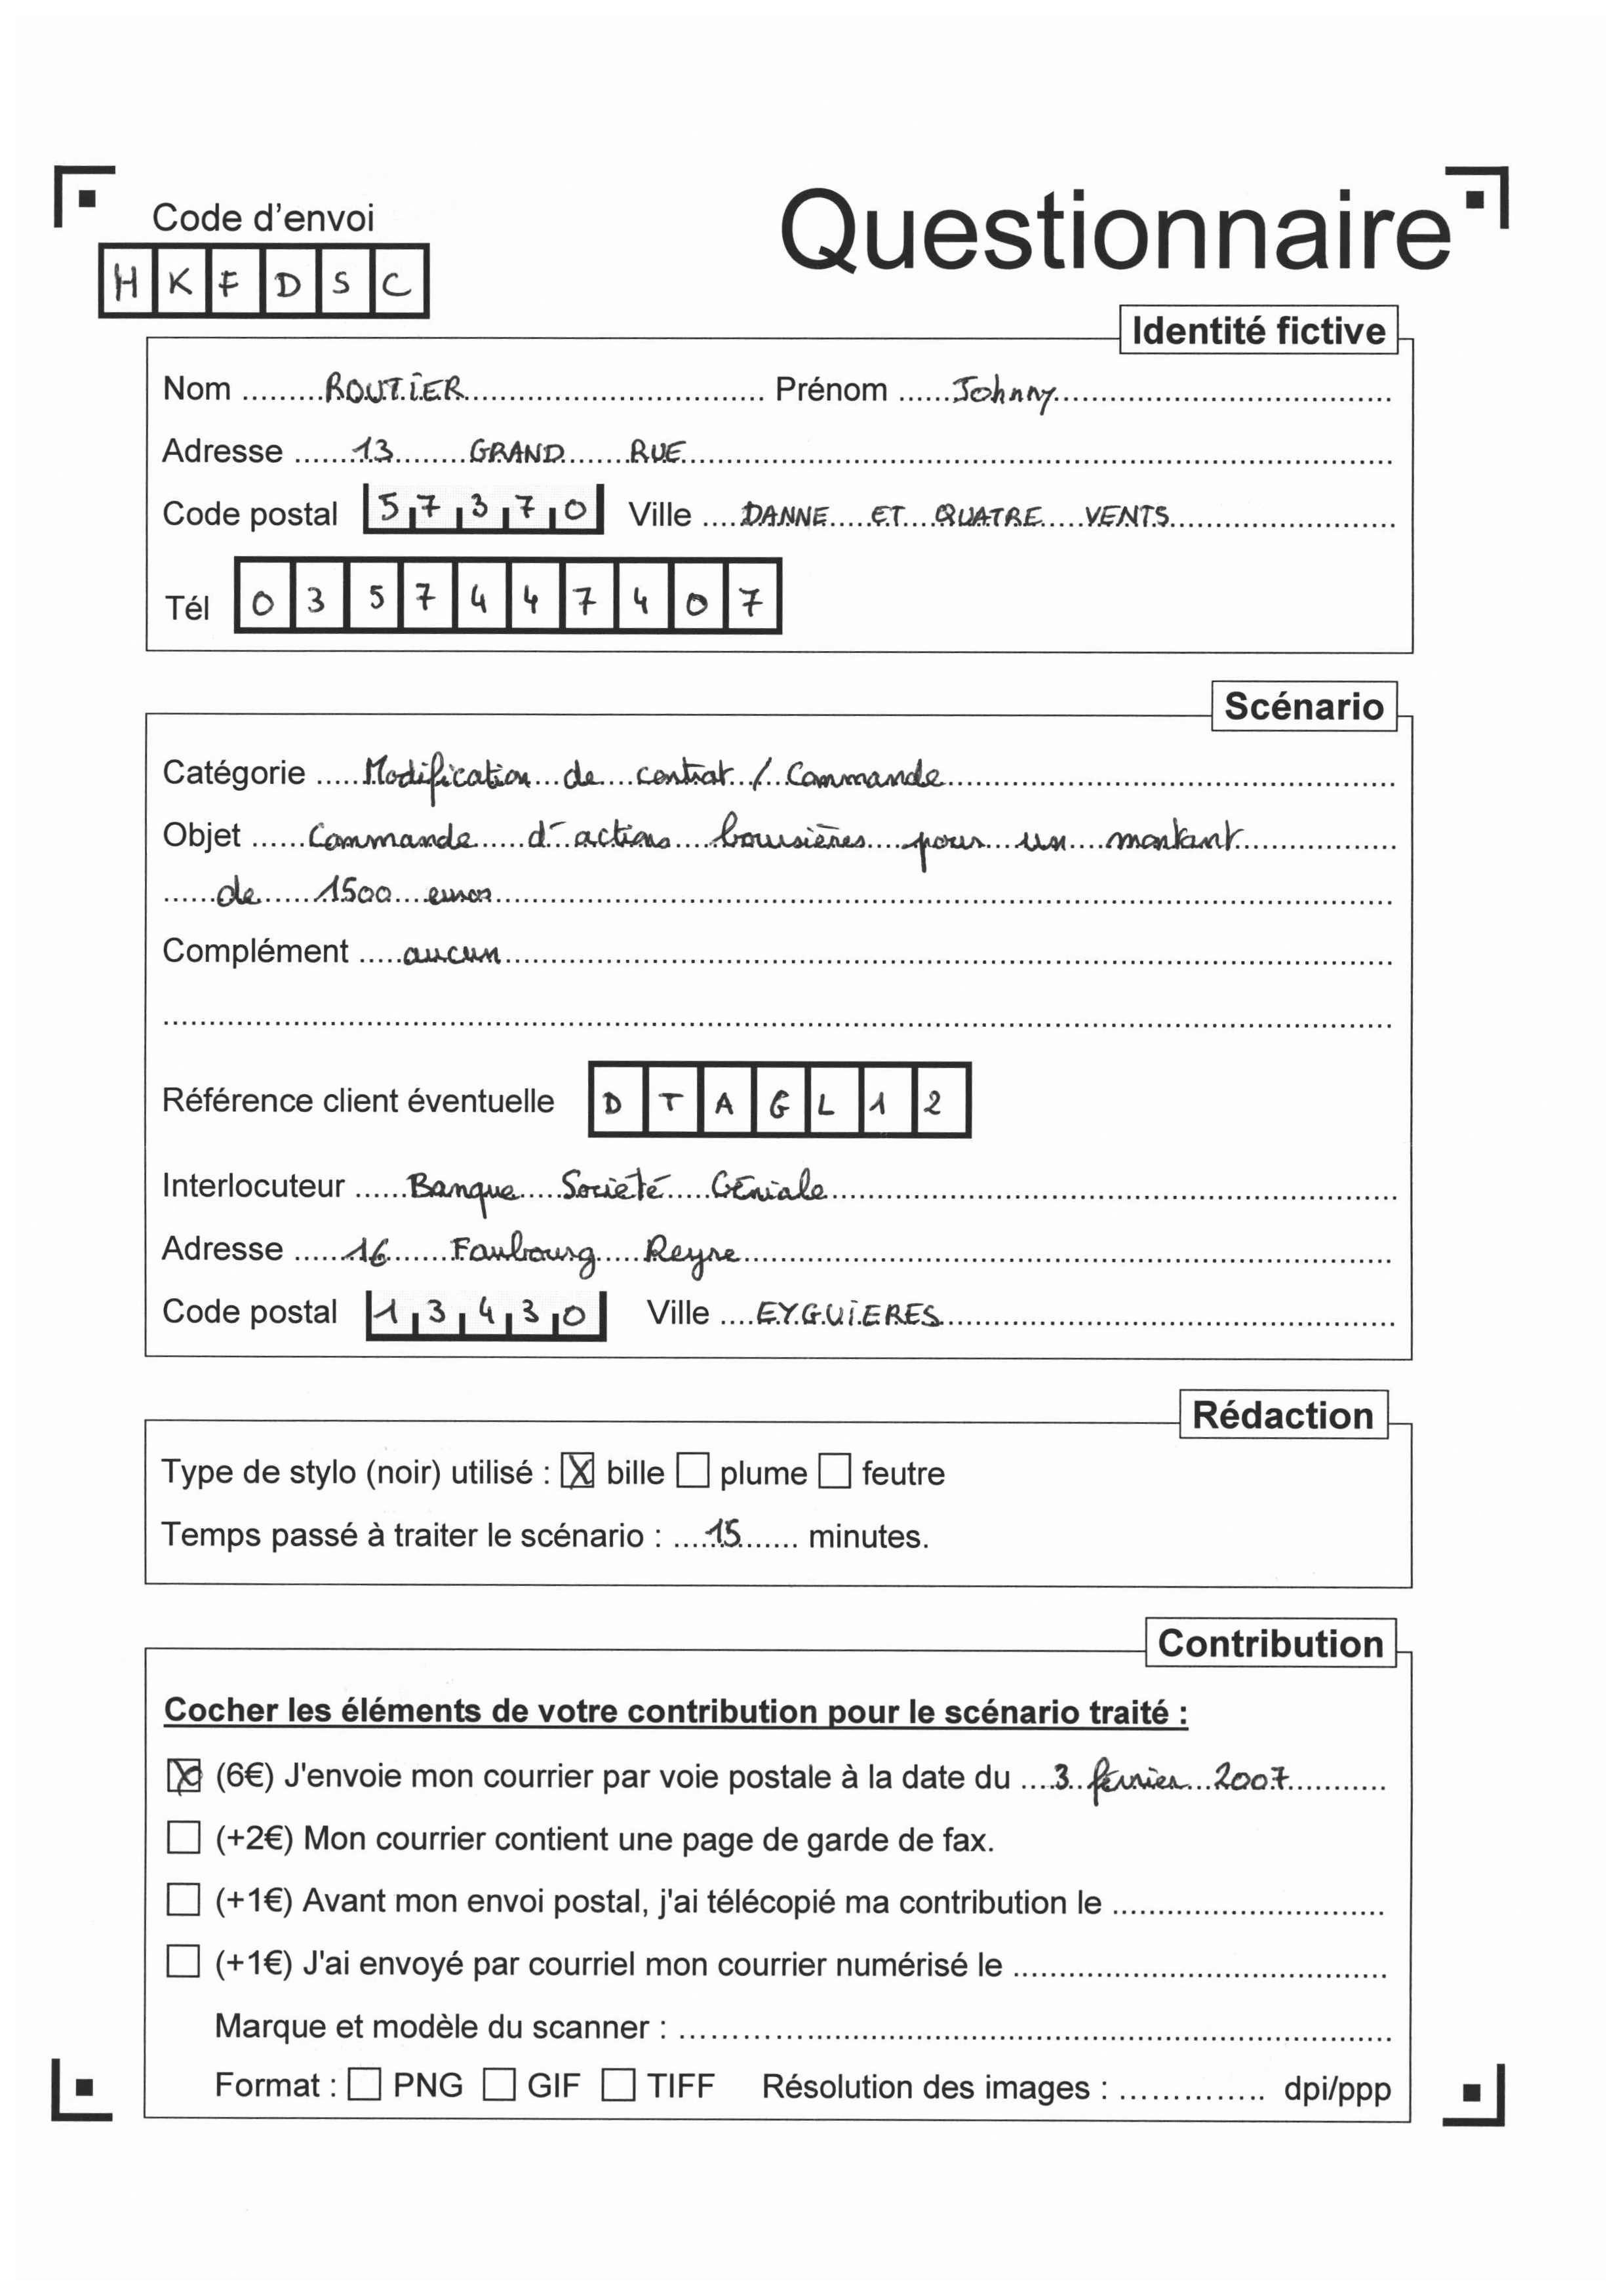 Code d'envoi
Questionnaire
H K F D S C
Identité fictive
Nom ROUTIER Prénom Johnny
Adresse 13 GRAND RUE
Code postal 57370 Ville DANNE ET QUATRE VENTS
Tél 0357447407
Scénario
Catégorie Modification de contrat / Commande
Objet Commande d'actions boursières pour un montant
de 1500 euros
Complément aucun
Référence client éventuelle DTAGL12
Interlocuteur Banque Société Géniale
Adresse 16 Faubourg Reyre
Code postal 13430 Ville EYGUIERES
Rédaction
Type de stylo (noir) utilisé : ☒ bille ☐ plume ☐ feutre
Temps passé à traiter le scénario : 15 minutes.
Contribution
Cocher les éléments de votre contribution pour le scénario traité :
☒ (6€) J'envoie mon courrier par voie postale à la date du 3 février 2007
☐ (+2€) Mon courrier contient une page de garde de fax.
☐ (+1€) Avant mon envoi postal, j'ai télécopié ma contribution le
☐ (+1€) J'ai envoyé par courriel mon courrier numérisé le
Marque et modèle du scanner :
Format : ☐ PNG ☐ GIF ☐ TIFF Résolution des images : dpi/ppp